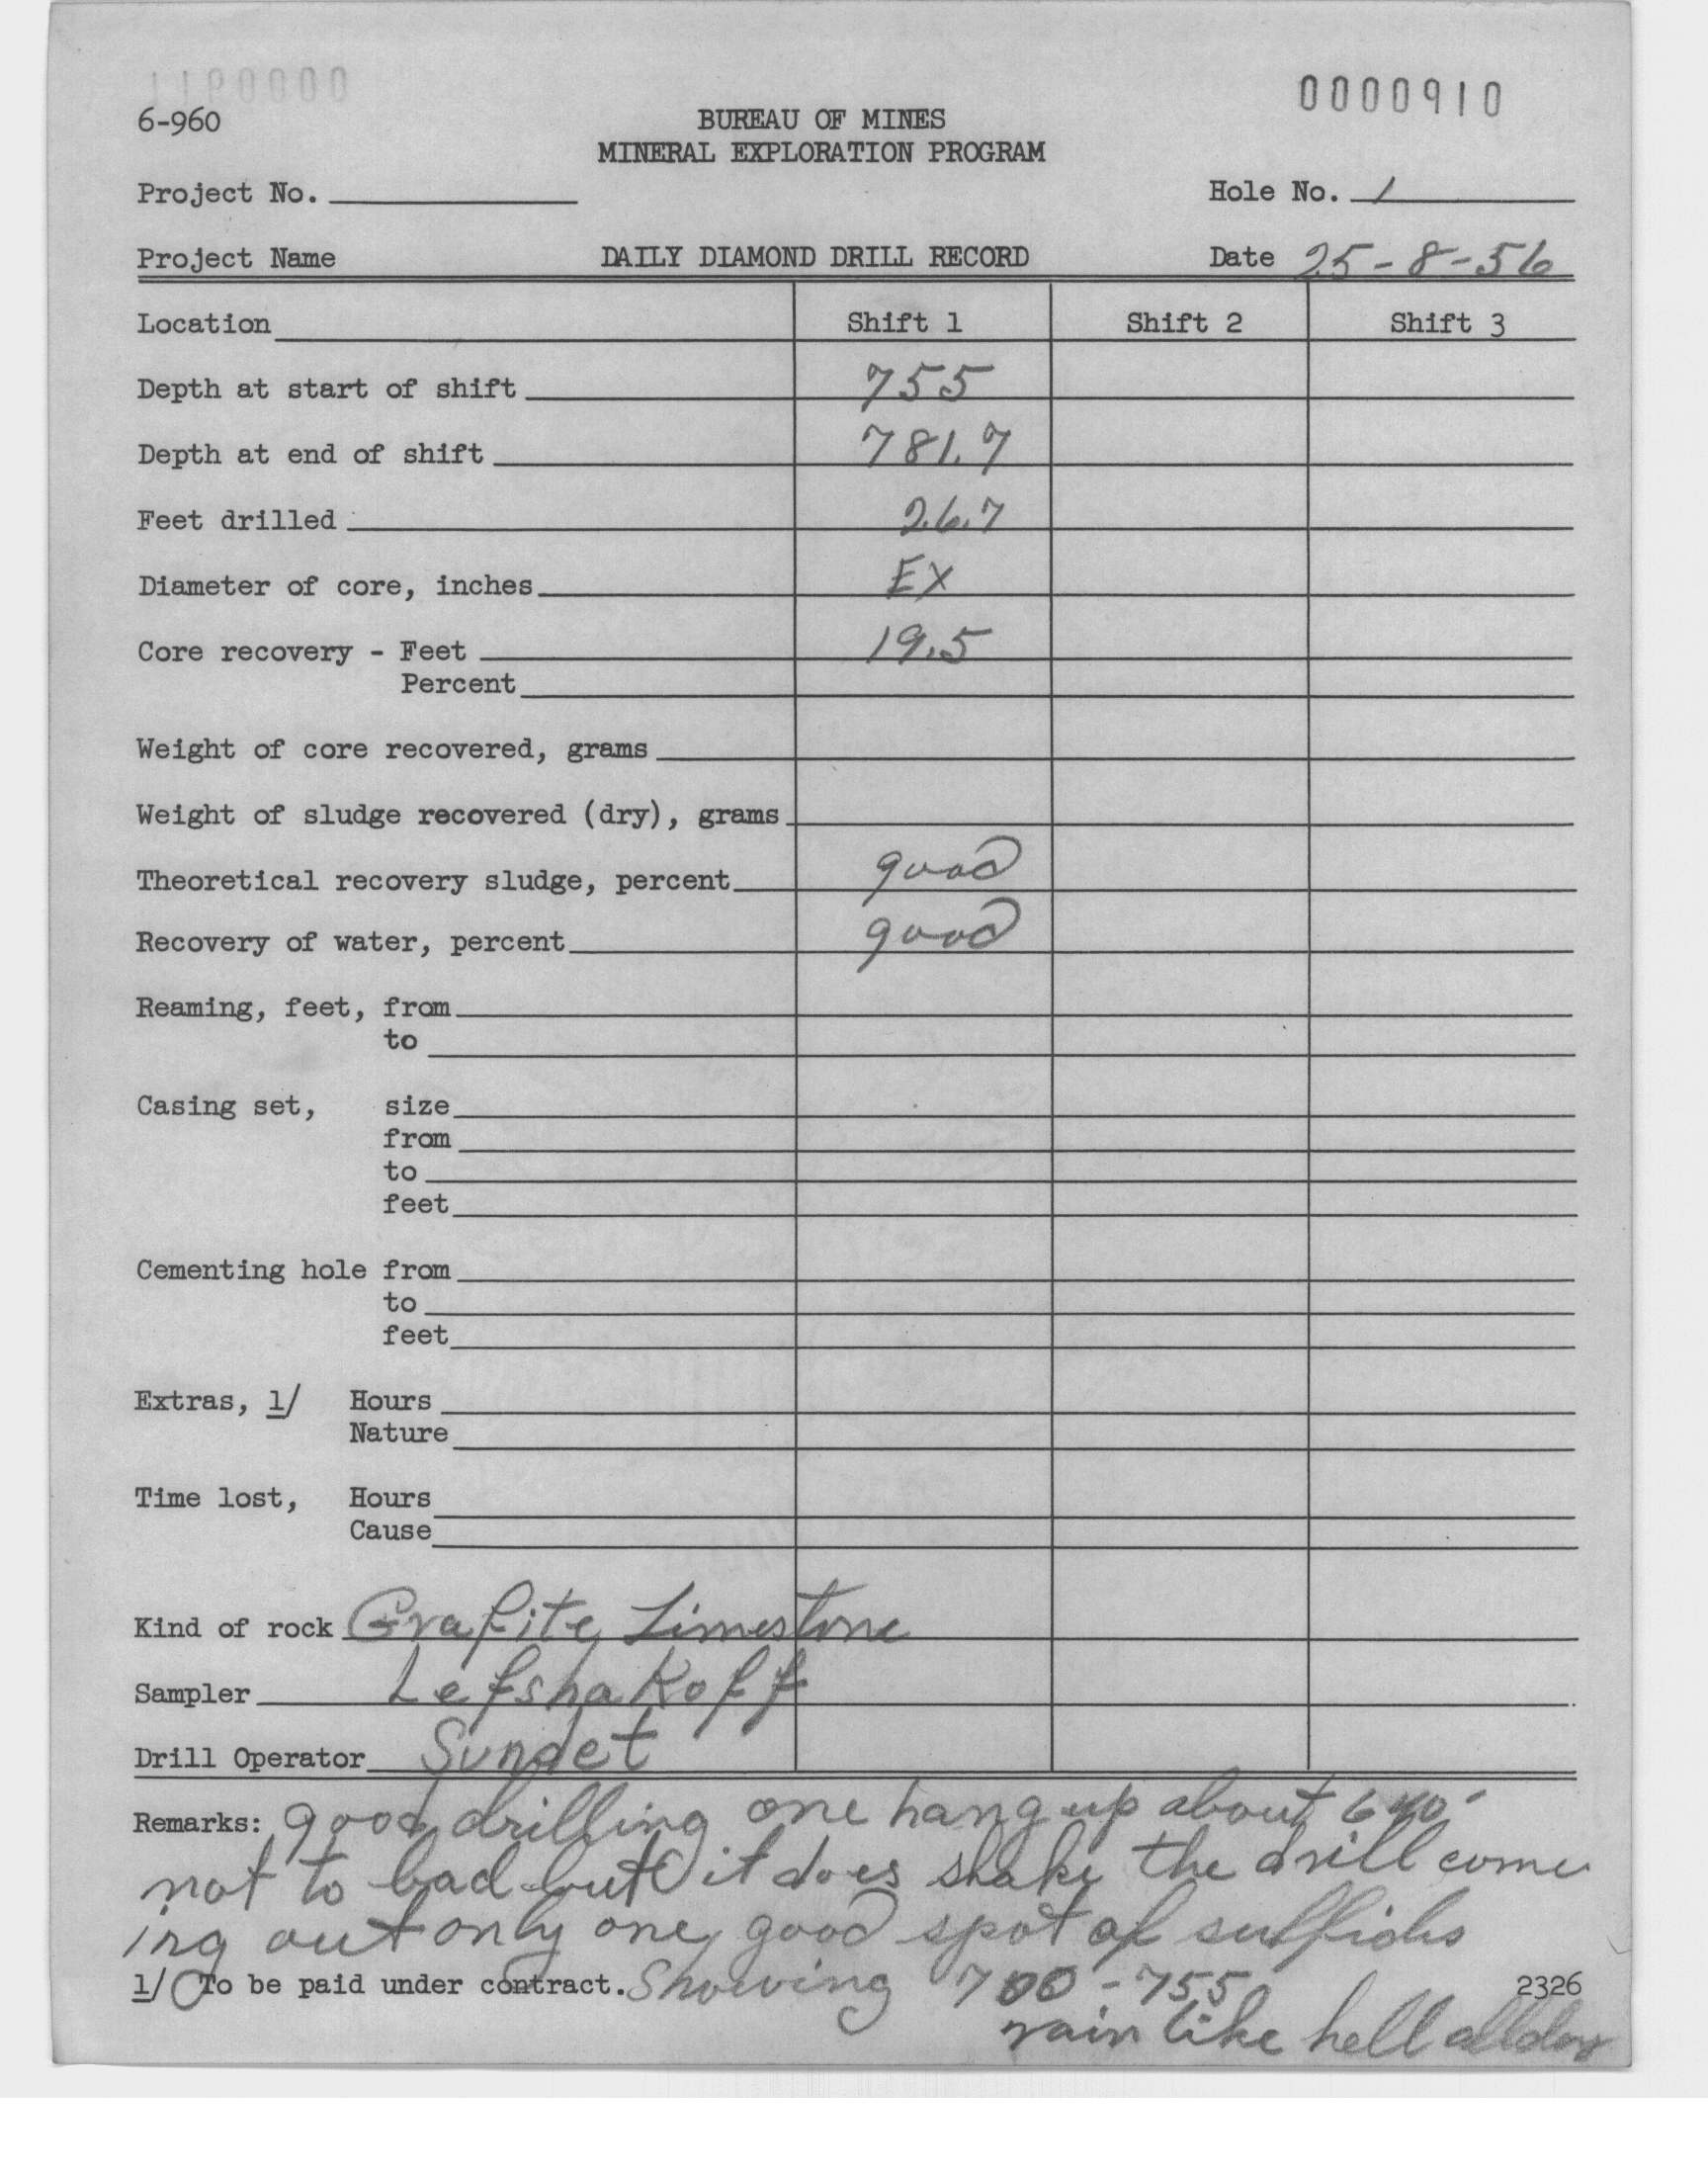 0000910
6-960
BUREAU OF MINES
MINERAL EXPLORATION PROGRAM
Project No.
Hole No. 1
Project Name DAILY DIAMOND DRILL RECORD Date 25-8-56
Location Shift 1 Shift 2 Shift 3
Depth at start of shift 755
Depth at end of shift 781.7
Feet drilled 26.7
Diameter of core, inches EX
Core recovery - Feet 19.5
Percent
Weight of core recovered, grams
Weight of sludge recovered (dry), grams
Theoretical recovery sludge, percent good
Recovery of water, percent good
Reaming, feet, from
to
Casing set, size
from
to
feet
Cementing hole from
to
feet
Extras, 1/ Hours
Nature
Time lost, Hours
Cause
Kind of rock Grafite Limestone
Sampler Lefshakoff
Drill Operator
Remarks: good drilling one hang up about 640'
not to bad but it does shake the drill come
ing out only one good spot of sulfids
1/ To be paid under contract. Showing 700-755
2326
rain like hell all day